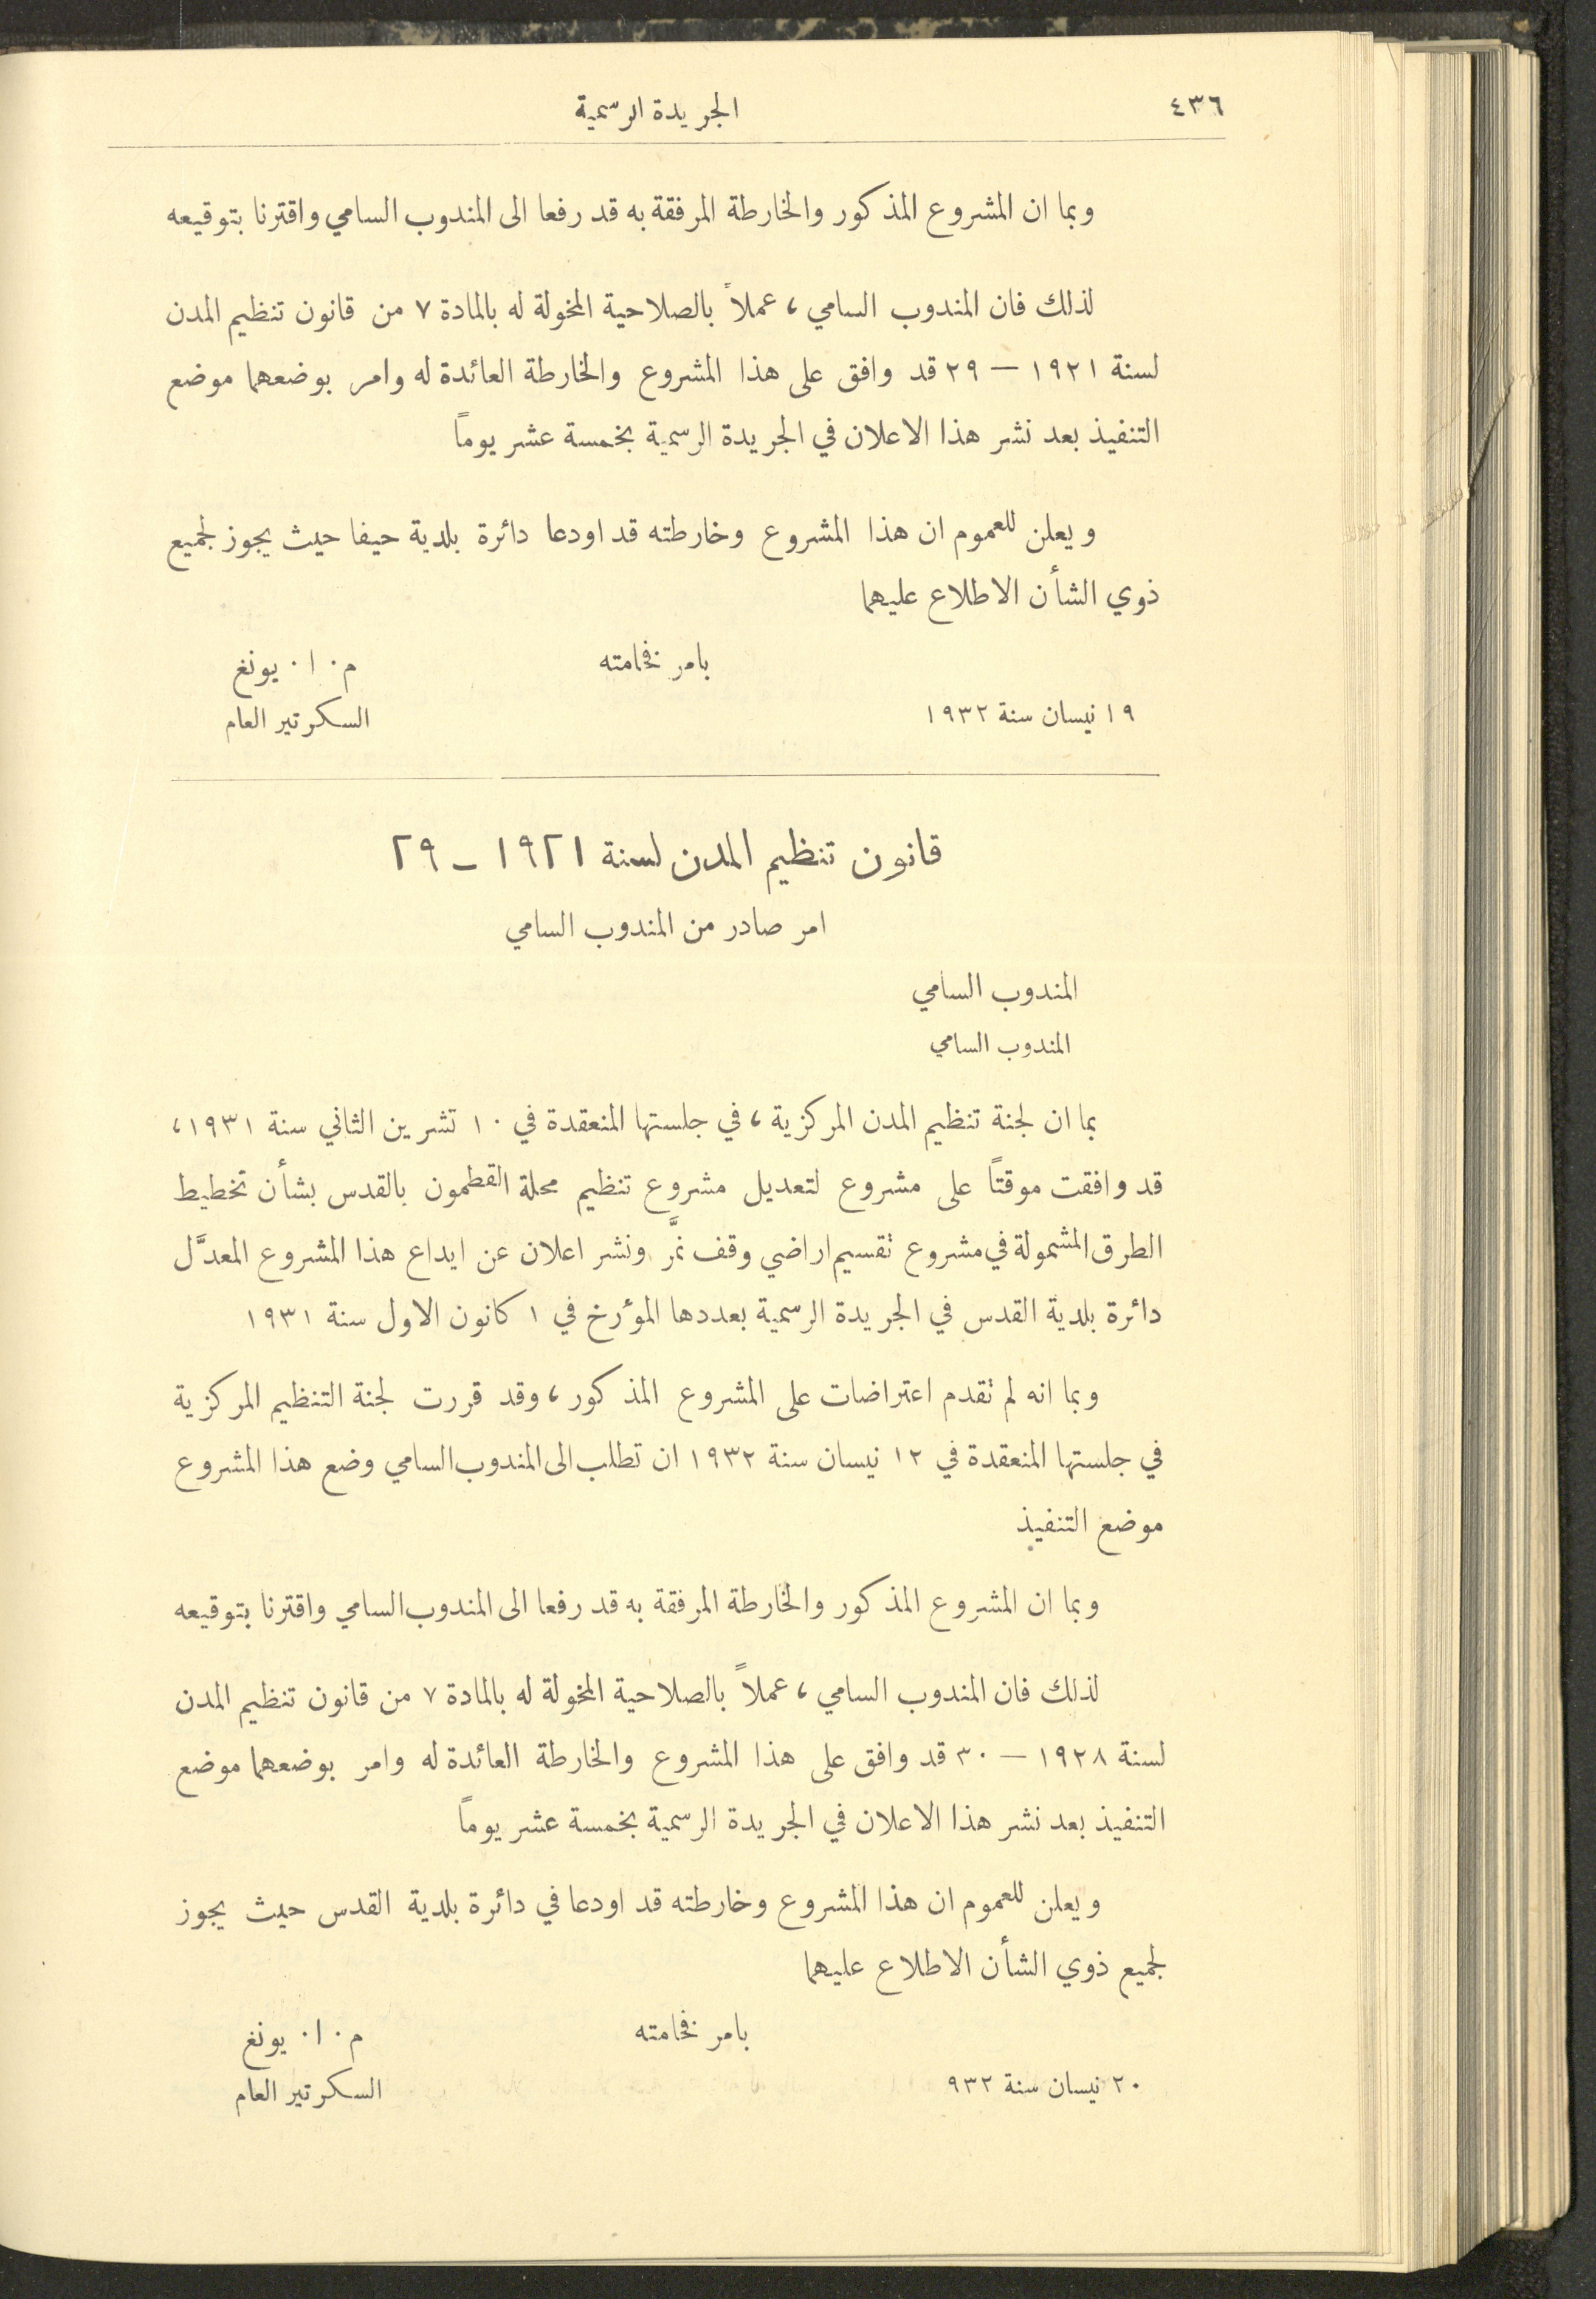 ٤٣٦
الجريدة الرسمية
وبما ان المشروع المذكور والخارطة المرفقة به قد رفعا الى المندوب السامي واقترنا بتوقيعه
لذلك فان المندوب السامي، عملاً بالصلاحية المخولة له بالمادة ٧ من قانون تنظيم المدن
لسنة ١٩٢١ — ٢٩ قد وافق على هذا المشروع والخارطة العائدة له وامر بوضعهما موضع
التنفيذ بعد نشر هذا الاعلان في الجريدة الرسمية بخمسة عشر يوماً
ويعلن للعموم ان هذا المشروع وخارطته قد اودعا دائرة بلدية حيفا حيث يجوز لجميع
ذوي الشأن الاطلاع عليهما
بامر فخامته
م. ا. يونغ
١٩ نيسان سنة ١٩٣٢
السكرتير العام
قانون تنظيم المدن لسنة ١٩٢١ - ٢٩
امر صادر من المندوب السامي
المندوب السامي
المندوب السامي
بما ان لجنة تنظيم المدن المركزية، في جلستها المنعقدة في ١٠ تشرين الثاني سنة ١٩٣١،
قد وافقت موقتاً على مشروع لتعديل مشروع تنظيم محلة القطمون بالقدس بشأن تخطيط
الطرق المشمولة في مشروع تقسيم اراضي وقف نمَّر ونشر اعلان عن ايداع هذا المشروع المعدَّل
دائرة بلدية القدس في الجريدة الرسمية بعددها المؤرخ في ١ كانون الاول سنة ١٩٣١
وبما انه لم تقدم اعتراضات على المشروع المذكور، وقد قررت لجنة التنظيم المركزية
في جلستها المنعقدة في ١٢ نيسان سنة ١٩٣٢ ان تطلب الى المندوب السامي وضع هذا المشروع
موضع التنفيذ
وبما ان المشروع المذكور والخارطة المرفقة به قد رفعا الى المندوب السامي واقترنا بتوقيعه
لذلك فان المندوب السامي، عملاً بالصلاحية المخولة له بالمادة ٧ من قانون تنظيم المدن
لسنة ١٩٢٨ — ٣٠ قد وافق على هذا المشروع والخارطة العائدة له وامر بوضعهما موضع
التنفيذ بعد نشر هذا الاعلان في الجريدة الرسمية بخمسة عشر يوماً
ويعلن للعموم ان هذا المشروع وخارطته قد اودعا في دائرة بلدية القدس حيث يجوز
لجميع ذوي الشأن الاطلاع عليهما
بامر فخامته
م. ا. يونغ
٢٠ نيسان سنة ٩٣٢
السكرتير العام